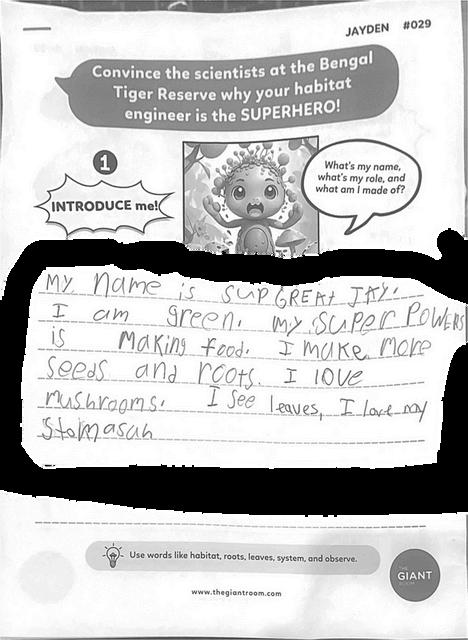 JAYDEN #029
Convince the scientists at the Bengal
Tiger Reserve why your habitat
engineer is the SUPERHERO!
1
INTRODUCE me!
What's my name,
what's my role, and
what am I made of?
My name is SUPGREAT JAY.
I am green. my super Powers
is making food. I make more
seeds and roots. I love
mushrooms. I see leaves, I love my
Stomasah
Use words like habitat, roots, leaves, system, and observe.
THE
GIANT
ROOM
www.thegiantroom.com